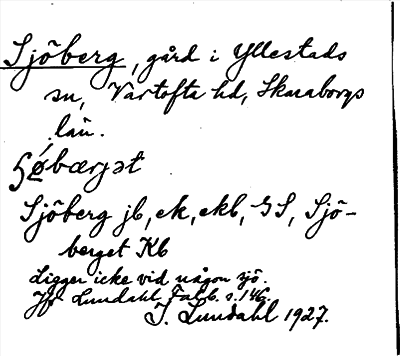 Sjöberg, gård i Yllestads
sn, Vartofta hd, Skaraborgs
län.
Sjöberg jb, ek, ekb, GS, Sjö-
berget Kb
Ligger icke vid någon sjö.
Jfr Lundahl Falb. s. 146.
I. Lundahl 1927.